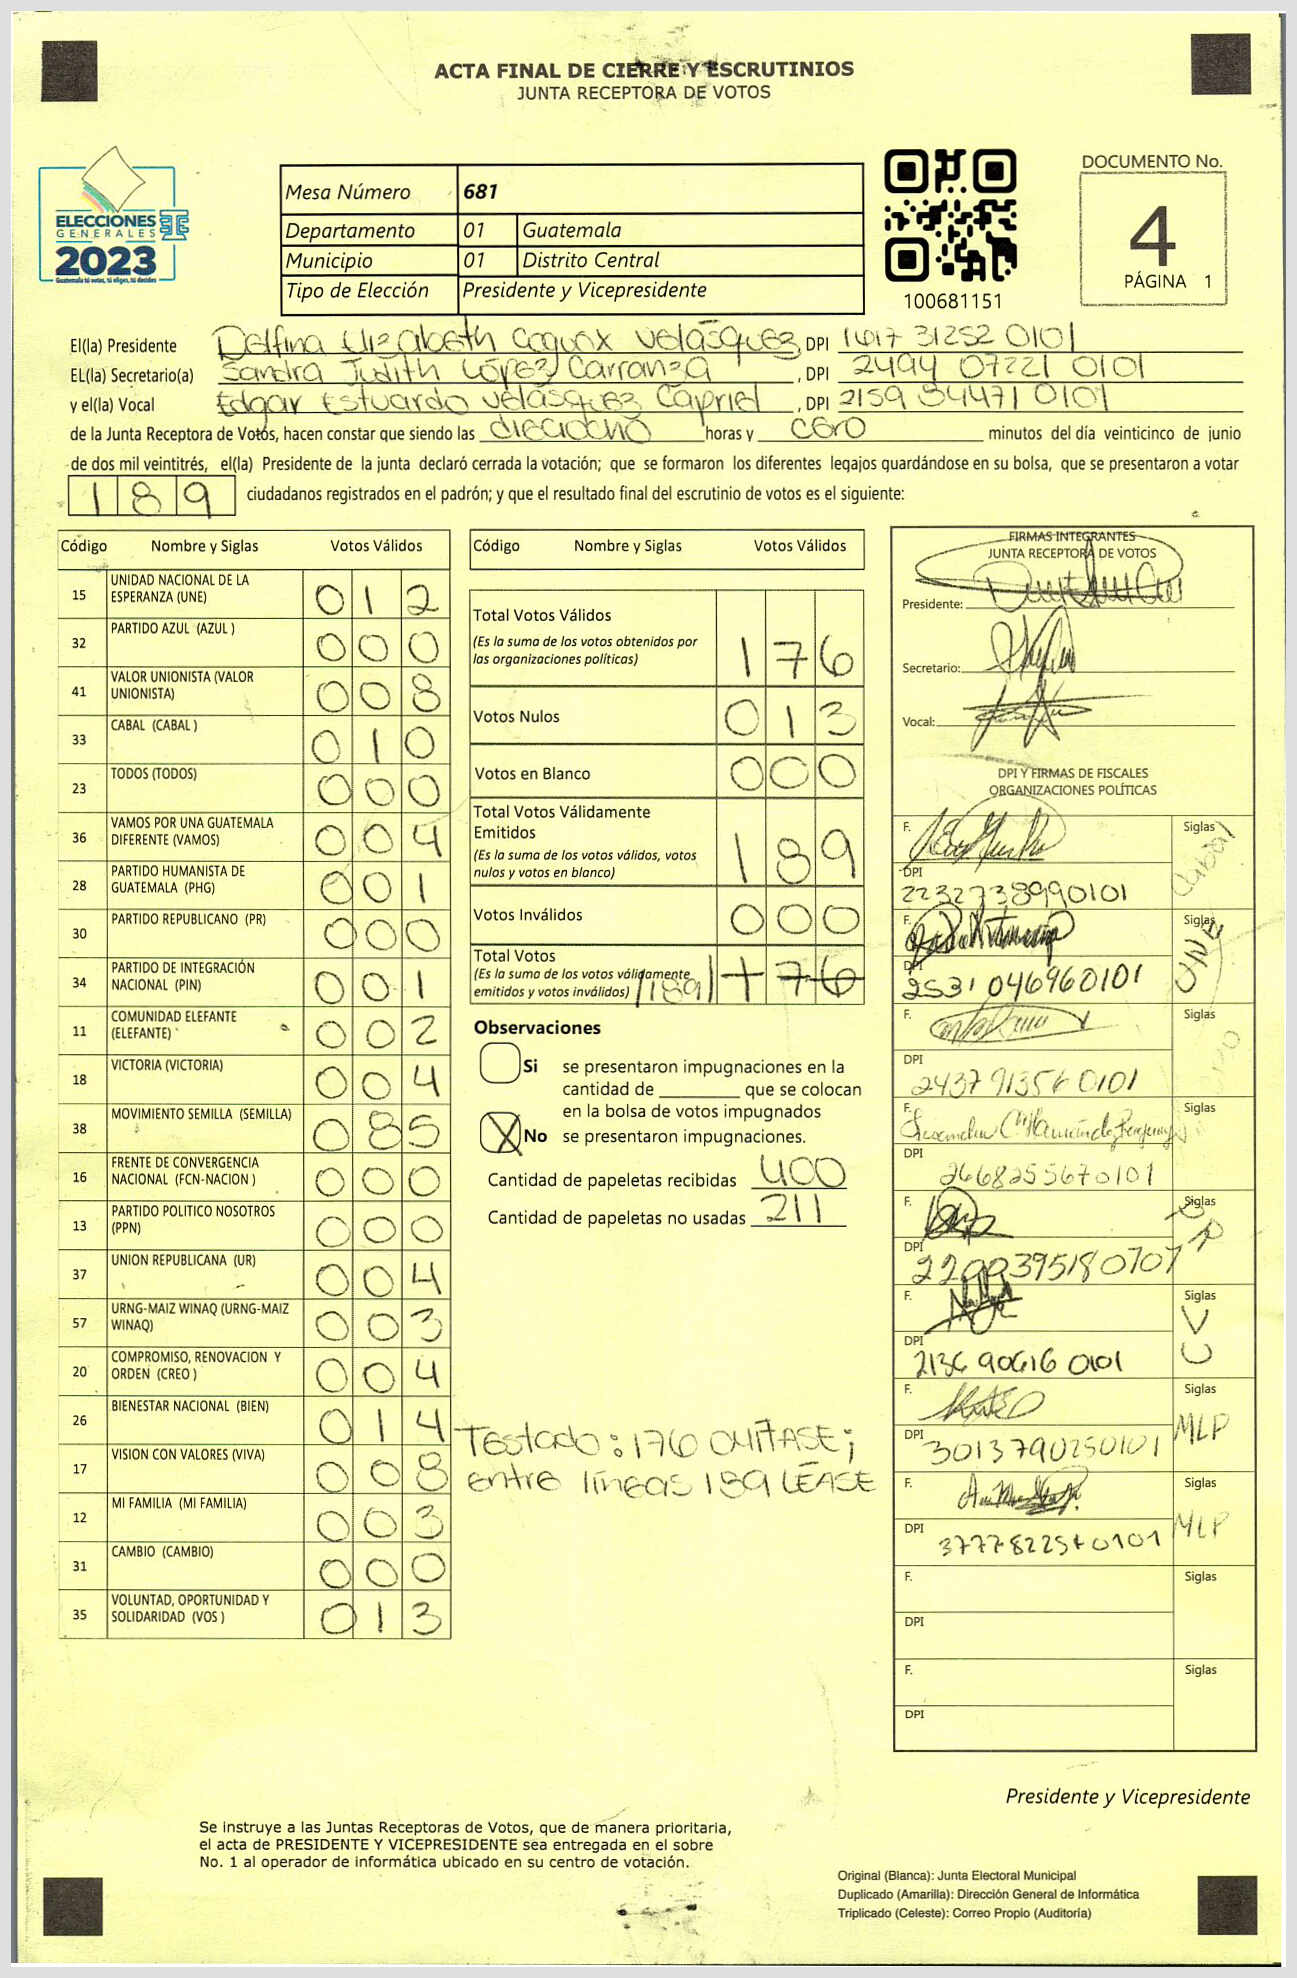 ACTA FINAL DE CIERRE Y ESCRUTINIOS
JUNTA RECEPTORA DE VOTOS
ELECCIONES
GENERALES
2023
Guatemala tú votas, tú eliges, tú decides
Mesa Número 681
Departamento 01 Guatemala
Municipio 01 Distrito Central
Tipo de Elección Presidente y Vicepresidente
100681151
DOCUMENTO No.
4
PÁGINA 1
El(la) Presidente Delfina Elizabeth Velásquez, DPI 1617 31252 0101
EL(la) Secretario(a) Sandra Judith López Carranza, DPI 2494 07221 0101
y el(la) Vocal Edgar Estuardo Velásquez Capriel, DPI 2159 84471 0101
de la Junta Receptora de Votos, hacen constar que siendo las dieciocho horas y cero minutos del día veinticinco de junio
de dos mil veintitrés, el(la) Presidente de la junta declaró cerrada la votación; que se formaron los diferentes legajos guardándose en su bolsa, que se presentaron a votar
189 ciudadanos registrados en el padrón; y que el resultado final del escrutinio de votos es el siguiente:
Código Nombre y Siglas Votos Válidos
15 UNIDAD NACIONAL DE LA ESPERANZA (UNE) 012
32 PARTIDO AZUL (AZUL ) 000
41 VALOR UNIONISTA (VALOR UNIONISTA) 008
33 CABAL (CABAL ) 010
23 TODOS (TODOS) 000
36 VAMOS POR UNA GUATEMALA DIFERENTE (VAMOS) 004
28 PARTIDO HUMANISTA DE GUATEMALA (PHG) 001
30 PARTIDO REPUBLICANO (PR) 000
34 PARTIDO DE INTEGRACIÓN NACIONAL (PIN) 001
11 COMUNIDAD ELEFANTE (ELEFANTE) 002
18 VICTORIA (VICTORIA) 004
38 MOVIMIENTO SEMILLA (SEMILLA) 085
16 FRENTE DE CONVERGENCIA NACIONAL (FCN-NACION ) 000
13 PARTIDO POLITICO NOSOTROS (PPN) 000
37 UNION REPUBLICANA (UR) 004
57 URNG-MAIZ WINAQ (URNG-MAIZ WINAQ) 003
20 COMPROMISO, RENOVACION Y ORDEN (CREO ) 004
26 BIENESTAR NACIONAL (BIEN) 014
17 VISION CON VALORES (VIVA) 008
12 MI FAMILIA (MI FAMILIA) 003
31 CAMBIO (CAMBIO) 000
35 VOLUNTAD, OPORTUNIDAD Y SOLIDARIDAD (VOS ) 013
Código Nombre y Siglas Votos Válidos
Total Votos Válidos 176
(Es la suma de los votos obtenidos por
las organizaciones políticas)
Votos Nulos 013
Votos en Blanco 000
Total Votos Válidamente
Emitidos 189
(Es la suma de los votos válidos, votos
nulos y votos en blanco)
Votos Inválidos 000
Total Votos
(Es la suma de los votos válidamente
emitidos y votos inválidos) 189 176
Observaciones
Si se presentaron impugnaciones en la
cantidad de ________ que se colocan
en la bolsa de votos impugnados
X No se presentaron impugnaciones.
Cantidad de papeletas recibidas 400
Cantidad de papeletas no usadas 211
Testado: 176 OMITASE;
entre líneas 189 LEASE
FIRMAS INTEGRANTES
JUNTA RECEPTORA DE VOTOS
Presidente:
Secretario:
Vocal:
DPI Y FIRMAS DE FISCALES
ORGANIZACIONES POLÍTICAS
F. Siglas Cabal
DPI 2232738990101
F. Siglas UNE
DPI 2531046960101
F. Siglas
DPI 2437913560101
F. Siglas
DPI 2668255670101
F. Siglas PR
DPI 2290395180707
F. Siglas VU
DPI 2136906160101
F. Siglas MLP
DPI 3013790250101
F. Siglas MLP
DPI
F. Siglas
DPI
F. Siglas
DPI
Presidente y Vicepresidente
Se instruye a las Juntas Receptoras de Votos, que de manera prioritaria,
el acta de PRESIDENTE Y VICEPRESIDENTE sea entregada en el sobre
No. 1 al operador de informática ubicado en su centro de votación.
Original (Blanca): Junta Electoral Municipal
Duplicado (Amarilla): Dirección General de Informática
Triplicado (Celeste): Correo Propio (Auditoría)